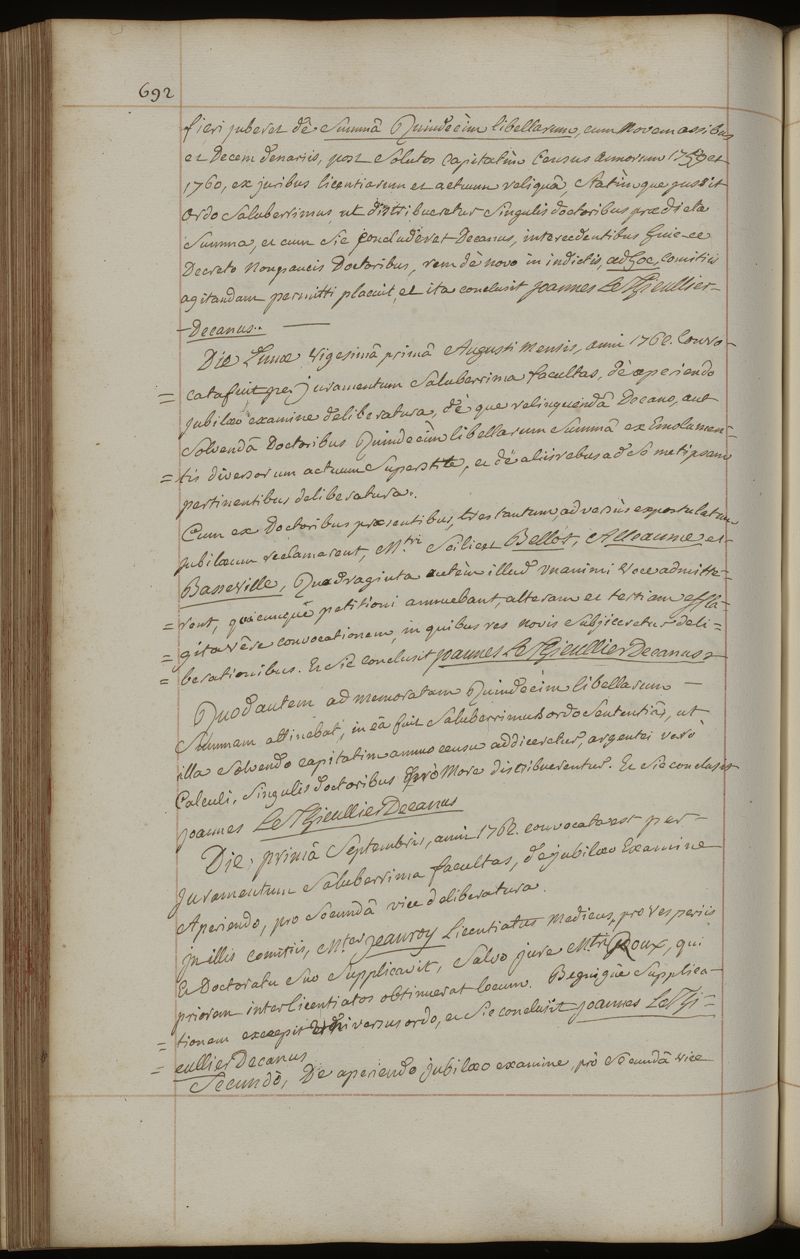 692
fieri juberet dê Summâ Quindecim libellarum, cum Novem assibus
et Decem denariis, post Solutos Capitatim Census annorum 1759 et
1760, ex juribus licentiarum et actuum reliquâ, Statimque jussit
Ordo Saluberrimus ut distribueretur Singulis doctoribus prædicta
Summa, et cum Sic concluderet Decanus, intercedentibus huicce
Decreto Nonpaucis Doctoribus, rem dê novo in indictis, ad hoc, Comitiis
agitandam permitti placuit, et ita conclusit Joannes Le Thieullier-
-Decanus..
Die Lunæ Vigesimâ primâ Augusti Mensis, anni 1760. Convo-
=cata fuit per juramentum Saluberrima facultas, dê aperiendo
jubilæo examine deliberatura, dê que relinquendâ Decano, aut
Solvendâ Doctoribus Quindecim libellarum Summâ ex Emolumen=
=tis diversorum actuum Superstite, et dê aliis rebus ad Sô metipsam
pertinentibus deliberatura.
Cum ex Doctoribus præsentibus, tres tantum, adversùs expostulatum
jubilæum reclamarent, M.tri Scilicet Bellot, Alleaume et
Basseville, Quadraginta autem illud Unanimi Voce admitte=
=rent, quicunque petitioni annuebant, alteram et tertiam effla=
=gitavêre convocationem, in quibus res novis Subjiceretur deli=
=berationibus. Et Sic conclusit Joannes Le Thieullier Decanus
Quod autem ad memoratam Quindecim libellarum
Summam attinebat, in eâ fuit Saluberrimus ordo Sententiâ, ut
illa Solvendo capitatim annuo censu addiceretur, argentei verò
Calculi, Singulis doctoribus prô More distribuerentur. Et Sic conclusit
Joannes Le Thieullier Decanus
Die, primâ Septembris, anni 1760. convocata est per
juramentum Saluberrima facultas, de jubilæo Examine
Aperiendo, pro Secundâ vice deliberatura.
In illis comitiis, M.ter Jeanroy Licentiatus Medicus, pro Vesperiis
Et Doctoratu Suo Supplicavit, Salvo jure M.tri Roux, qui
priorem inter licentiatos obtinuerat locum. Benignè Supplica-
=tionem excepit Universus ordo, et Sic conclusit Joannes Le Thi=
=eullier Decanus
Secundô, De aperiendo jubilæo examine, prô Secundâ vice